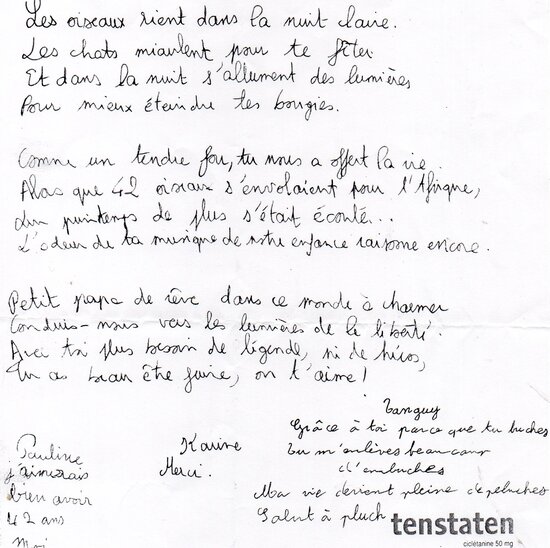 Les oiseaux rient dans la nuit claire.
Les chats miaulent pour te fêter
Et dans la nuit s'allument des lumières
Pour mieux éteindre tes bougies.
Comme un tendre fou, tu nous a offert la vie.
Alors que 42 oiseaux s'envolaient pour l'Afrique,
Un printemps de plus s'était écoulé...
L'odeur de ta musique de notre enfance raisonne encore.
Petit papa de rêve dans ce monde à charmer
Conduis-nous vers les lumières de la liberté.
Avec toi plus besoin de légende, ni de héros,
Tu as beau être juive, on t'aime!
Tanguy
Grâce à toi parce que tu buches
Tu m'enlèves beaucoup
d'embuches
Ma vie devient pleine de peluches
Salut à pluch
Karine
Merci.
Pauline
j'aimerais
bien avoir
42 ans
Moi
tenstaten
ciclétanine 50 mg